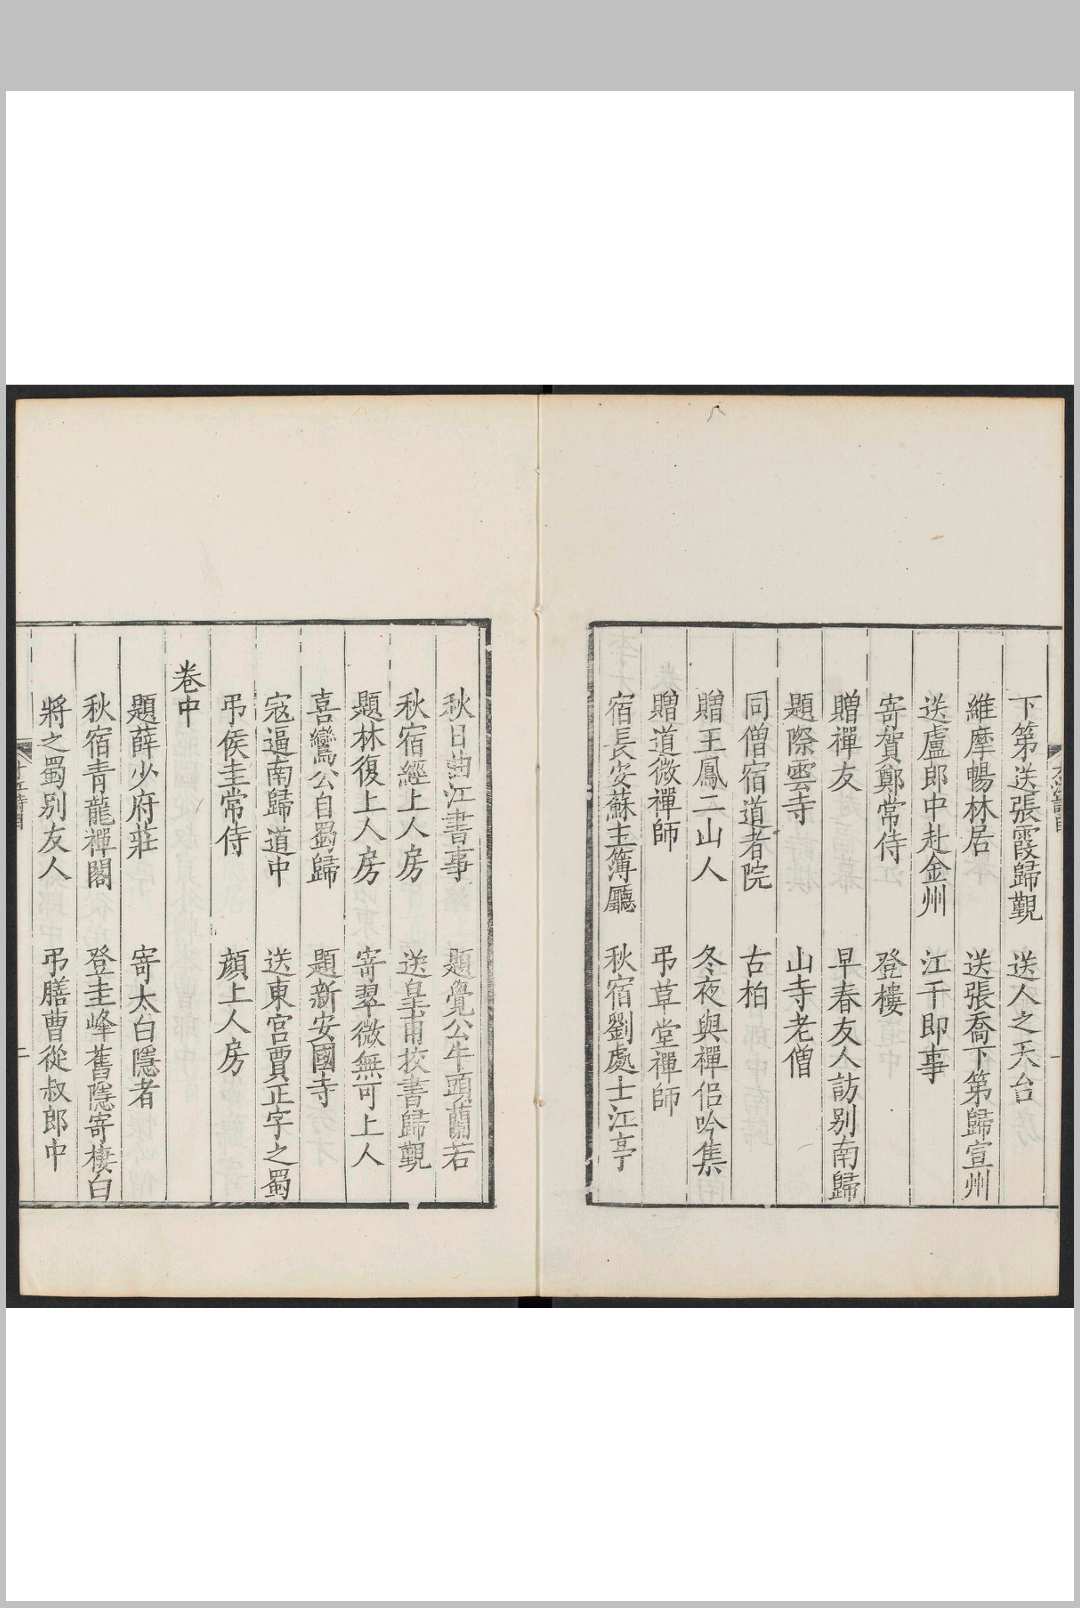 下第送張霞歸覲　送人之天台
維摩暢林居　送張喬下第歸宣州
送盧郎中赴金州　江干即事
寄賀鄭常侍　登樓
贈禪友　早春友人訪别南歸
題際雲寺　山寺老僧
同僧宿道者院　古柏
贈王鳳二山人　冬夜與禪侣吟集
贈道微禪師　弔草堂禪師
宿長安蘇主簿廳　秋宿劉處士江亭
秋日曲江書事　題覺公牛頭蘭若
秋宿經上人房　送皇甫挍書歸覲
題林復上人房　寄翠微無可上人
喜鸞公自蜀歸　題新安國寺
寇逼南歸道中　送東宫賈正字之蜀
弔侯圭常侍　顔上人房
卷中
題薛少府莊　寄太白隱者
秋宿青龍禪閣　登圭峰舊隱寄棲白
將之蜀别友人　弔膳曹從叔郎中